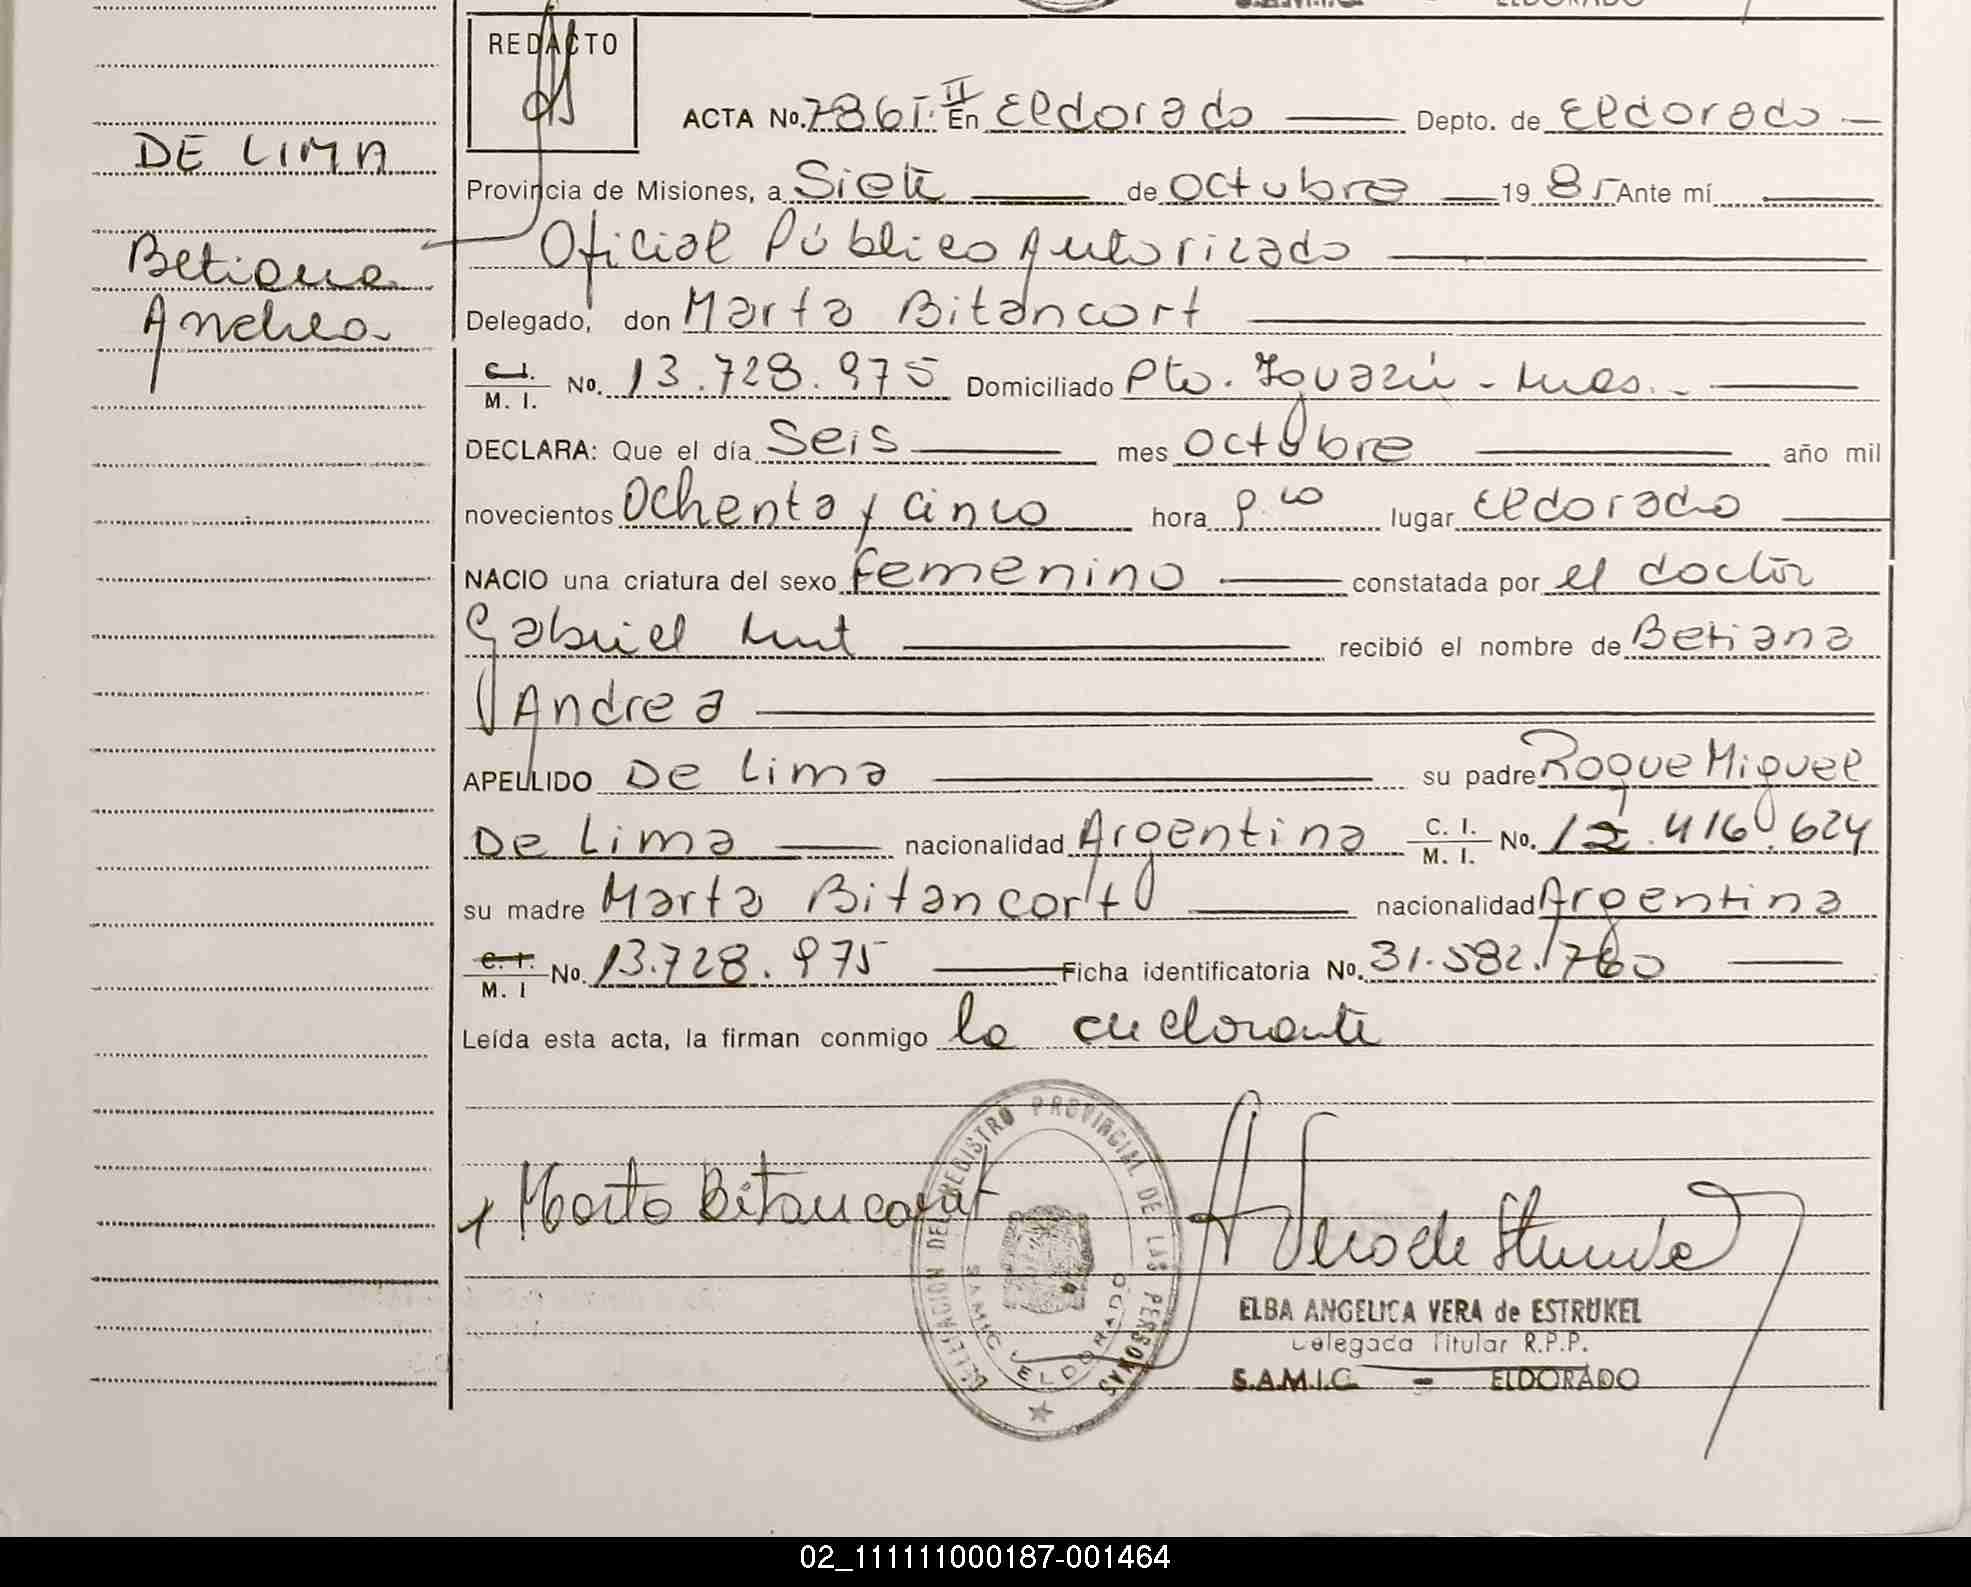 REDACTO
DE LIMA
Betiana
Andrea
ACTA No. 786 T. II En Eldorado Depto. de Eldorado
Provincia de Misiones, a Siete de octubre 19 85 Ante mí
Oficial Público Autorizado
Delegado, don Marta Bitancort
C. I. M. I. No. 13.728.975 Domiciliado Pto. Iguazú - Mnes.
DECLARA: Que el día Seis mes octubre año mil
novecientos Ochenta y cinco hora lugar eldorado
NACIO una criatura del sexo femenino constatada por el doctor
Gabriel recibió el nombre de Betiana
Andrea
APELLIDO De Lima su padre Roque Miguel
De Lima nacionalidad Argentina C. I. M. I. No. 12.416.624
su madre Marta Bitancort nacionalidad Argentina
C. I. M. I No. 13.728.975 Ficha identificatoria No. 31.582.760
Leída esta acta, la firman conmigo la declarante
Marta Bitancort
DELEGACION DEL REGISTRO PROVINCIAL DE LAS PERSONAS
SAMIC ELDORADO
ELBA ANGELICA VERA de ESTRUKEL
Delegada Titular R.P.P.
S.A.M.I.C. - ELDORADO
02_111111000187-001464